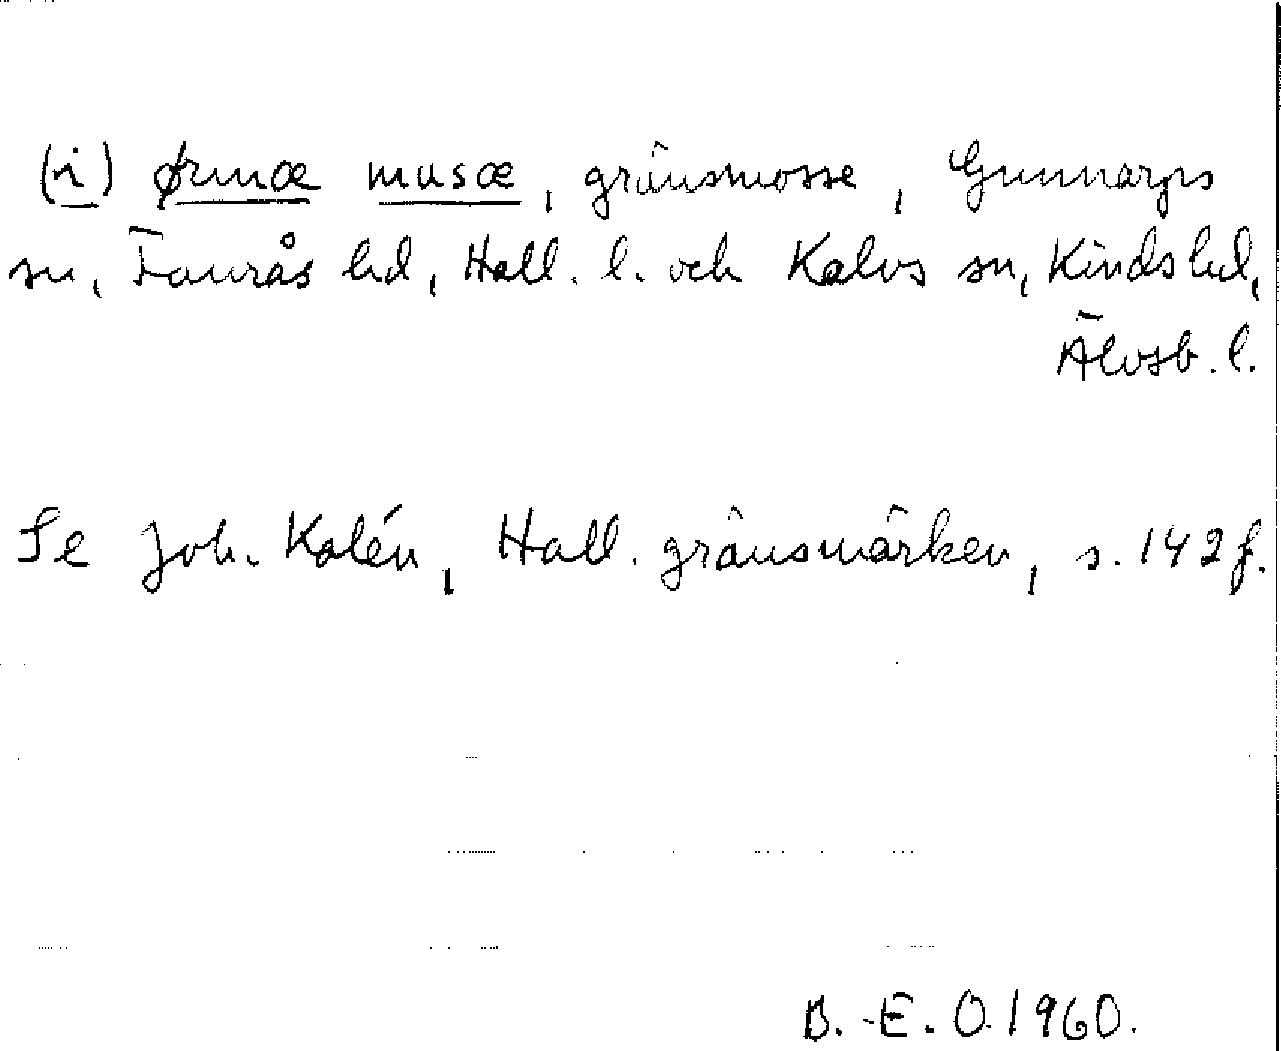 (i) ørnæ musæ, gränsmosse, Gunnarps
sn, Faurås hd, Hall. l. och Kalvs sn, Kinds hd,
Älvsb. l.
Se Joh. Kalén, Hall. gränsmärken, s. 142 f.
B.-E. O. 1960.